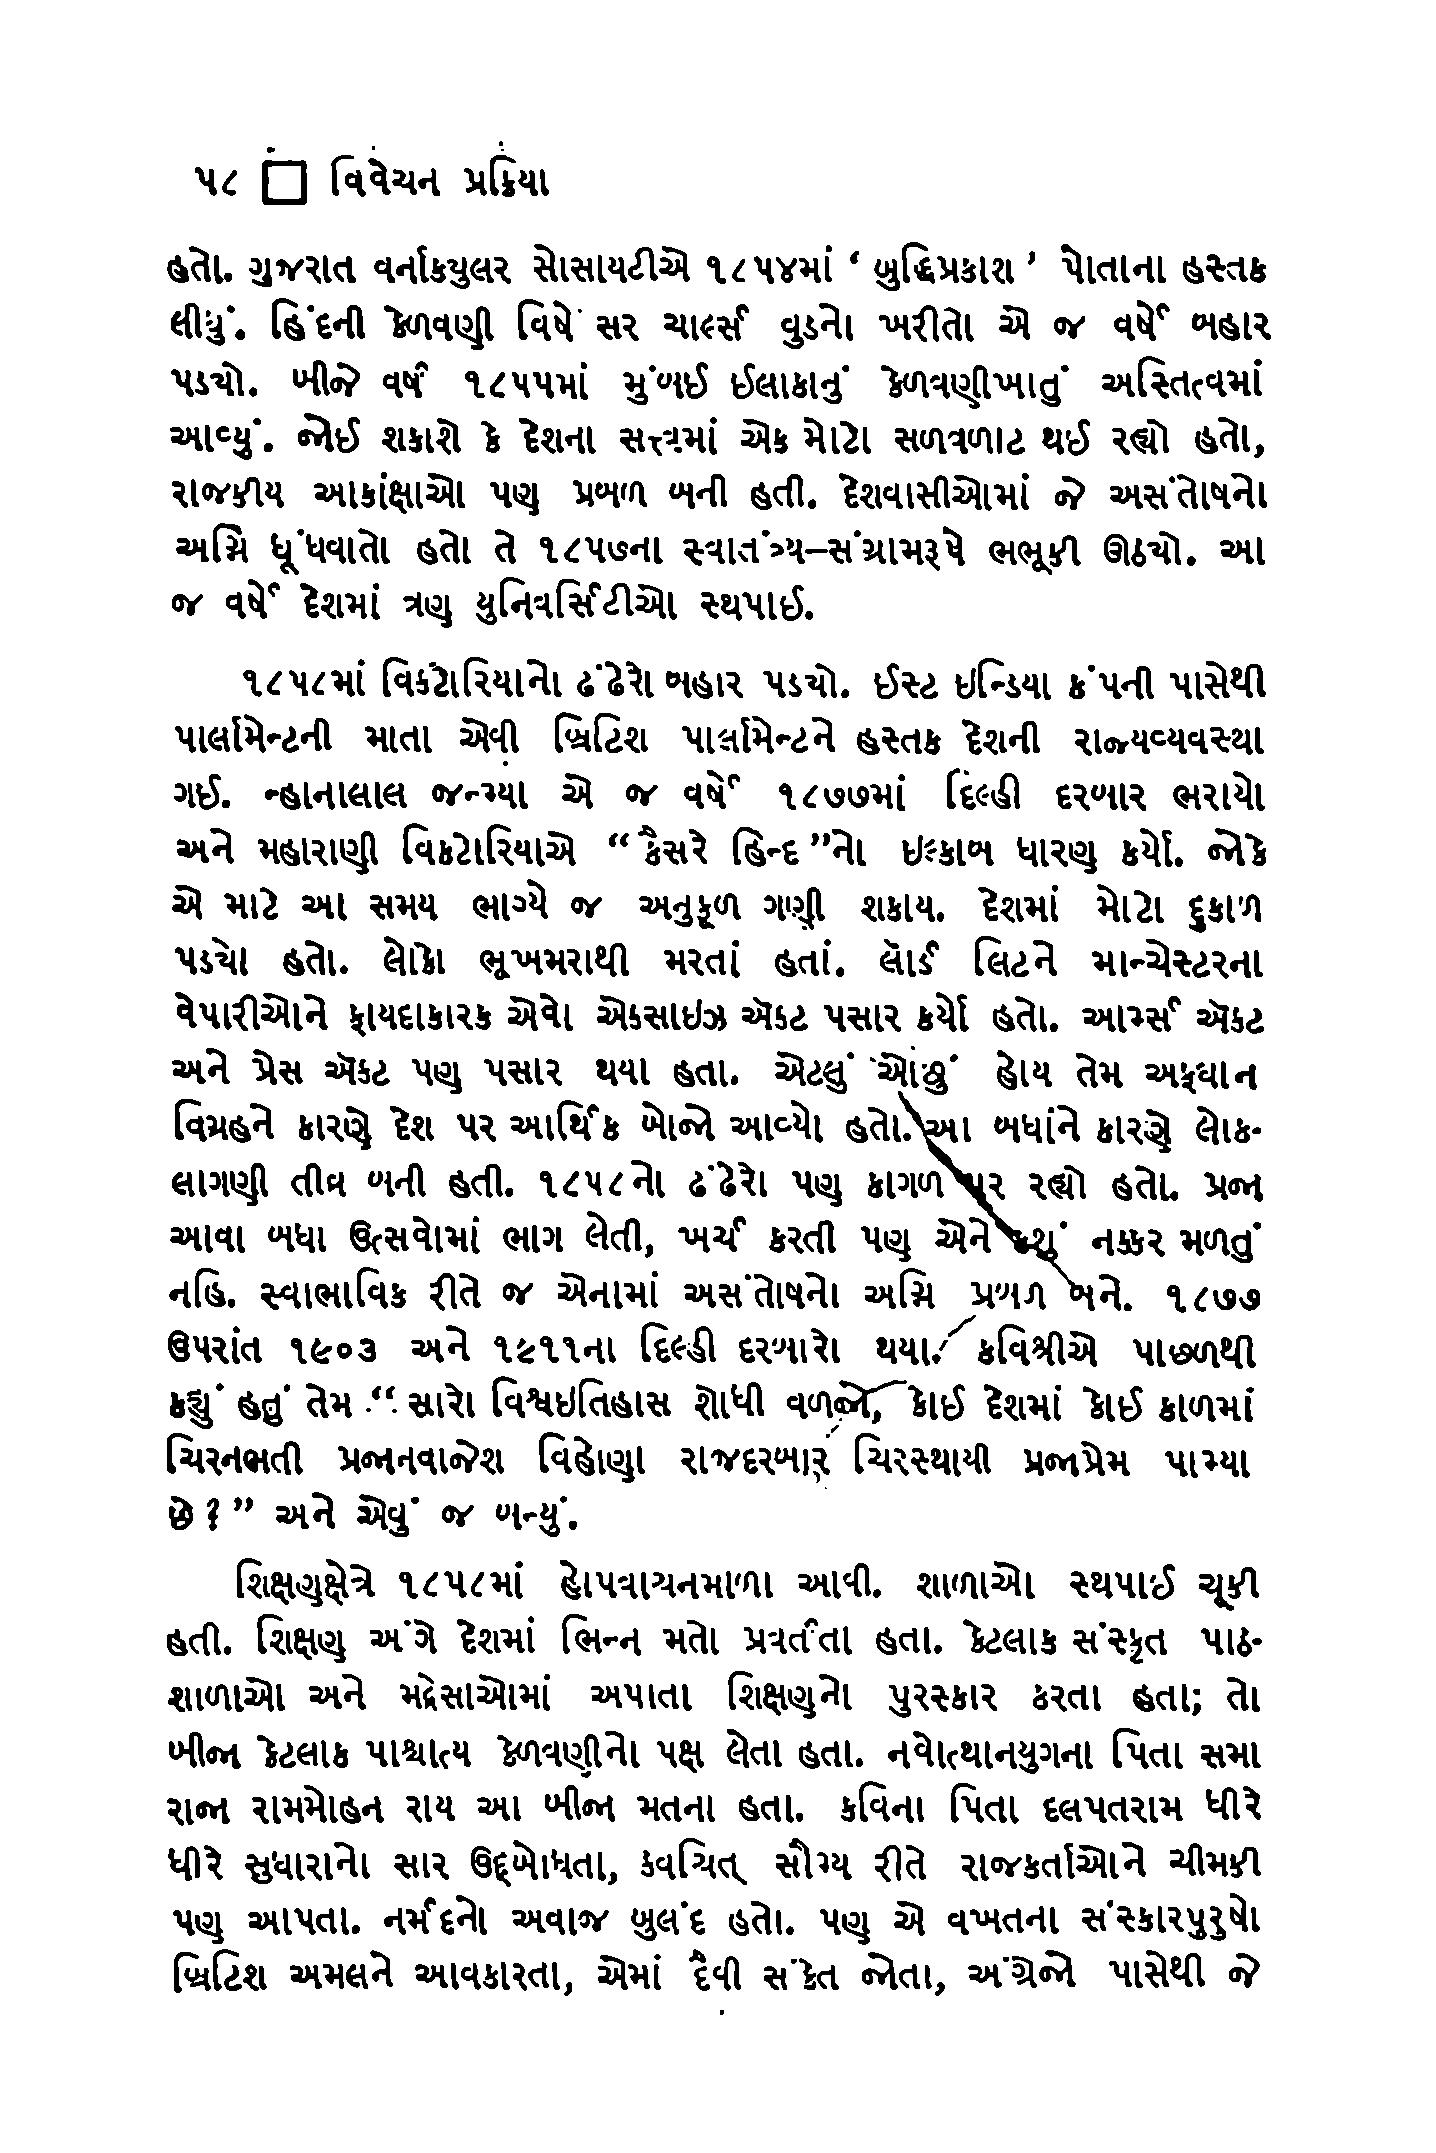 ૫૮ □ વિવેચન પ્રક્રિયા
હતો. ગુજરાત વર્નાક્યુલર સોસાયટીએ ૧૮૫૪માં ‘ બુદ્ધિપ્રકાશ ’ પોતાના હસ્તક
લીધું. હિંદની કેળવણી વિષે સર ચાર્લ્સ વુડનો ખરીતો એ જ વર્ષે બહાર
પડ્યો. બીજે વર્ષે ૧૮૫૫માં મુંબઈ ઈલાકાનું કેળવણીખાતું અસ્તિત્વમાં
આવ્યું. જોઈ શકાશે કે દેશના સત્ત્વમાં એક મોટો સળવળાટ થઈ રહ્યો હતો,
રાજકીય આકાંક્ષાઓ પણ પ્રબળ બની હતી. દેશવાસીઓમાં જે અસંતોષનો
અગ્નિ ધૂંધવાતો હતો તે ૧૮૫૭ના સ્વાતંત્ર્ય–સંગ્રામરૂપે ભભૂકી ઊઠ્યો. આ
જ વર્ષે દેશમાં ત્રણ યુનિવર્સિટીઓ સ્થપાઈ.
૧૮૫૮માં વિક્ટોરિયાનો ઢંઢેરો બહાર પડ્યો. ઈસ્ટ ઇન્ડિયા કંપની પાસેથી
પાર્લામેન્ટની માતા એવી બ્રિટિશ પાર્લામેન્ટને હસ્તક દેશની રાજ્યવ્યવસ્થા
ગઈ. ન્હાનાલાલ જન્મ્યા એ જ વર્ષે ૧૮૭૭માં દિલ્હી દરબાર ભરાયો
અને મહારાણી વિક્ટોરિયાએ “કૈસરે હિન્દ”નો ઇલ્કાબ ધારણ કર્યો. જોકે
એ માટે આ સમય ભાગ્યે જ અનુકૂળ ગણી શકાય. દેશમાં મોટો દુકાળ
પડ્યો હતો. લોકો ભૂખમરાથી મરતાં હતાં. લૉર્ડ લિટને માન્ચેસ્ટરના
વેપારીઓને ફાયદાકારક એવો એક્સાઇઝ ઍક્ટ પસાર કર્યો હતો. આર્મ્સ ઍક્ટ
અને પ્રેસ ઍક્ટ પણ પસાર થયા હતા. એટલું ઓછું હોય તેમ અફઘાન
વિગ્રહને કારણે દેશ પર આર્થિક બોજો આવ્યો હતો. આ બધાંને કારણે લોક-
લાગણી તીવ્ર બની હતી. ૧૮૫૮નો ઢંઢેરો પણ કાગળ પર રહ્યો હતો. પ્રજા
આવા બધા ઉત્સવોમાં ભાગ લેતી, ખર્ચ કરતી પણ એને કશું નક્કર મળતું
નહિ. સ્વાભાવિક રીતે જ એનામાં અસંતોષનો અગ્નિ પ્રબળ બને. ૧૮૭૭
ઉપરાંત ૧૯૦૩ અને ૧૯૧૧ના દિલ્હી દરબારો થયા. કવિશ્રીએ પાછળથી
કહ્યું હતું તેમ “ સારો વિશ્વઇતિહાસ શોધી વળજો, કોઈ દેશમાં કોઈ કાળમાં
ચિરનભતી પ્રજાનવાજેશ વિહોણા રાજદરબાર ચિરસ્થાયી પ્રજાપ્રેમ પામ્યા
છે?” અને એવું જ બન્યું.
શિક્ષણક્ષેત્રે ૧૮૫૮માં હોપવાચનમાળા આવી. શાળાઓ સ્થપાઈ ચૂકી
હતી. શિક્ષણ અંગે દેશમાં ભિન્ન મતો પ્રવર્તતા હતા. કેટલાક સંસ્કૃત પાઠ-
શાળાઓ અને મદ્રેસાઓમાં અપાતા શિક્ષણનો પુરસ્કાર કરતા હતા; તો
બીજા કેટલાક પાશ્ચાત્ય કેળવણીનો પક્ષ લેતા હતા. નવોત્થાનયુગના પિતા સમા
રાજા રામમોહન રાય આ બીજા મતના હતા. કવિના પિતા દલપતરામ ધીરે
ધીરે સુધારાનો સાર ઉદ્બોધતા, ક્વચિત્ સૌમ્ય રીતે રાજકર્તાઓને ચીમકી
પણ આપતા. નર્મદનો અવાજ બુલંદ હતો. પણ એ વખતના સંસ્કારપુરુષો
બ્રિટિશ અમલને આવકારતા, એમાં દૈવી સંકેત જોતા, અંગ્રેજો પાસેથી જે